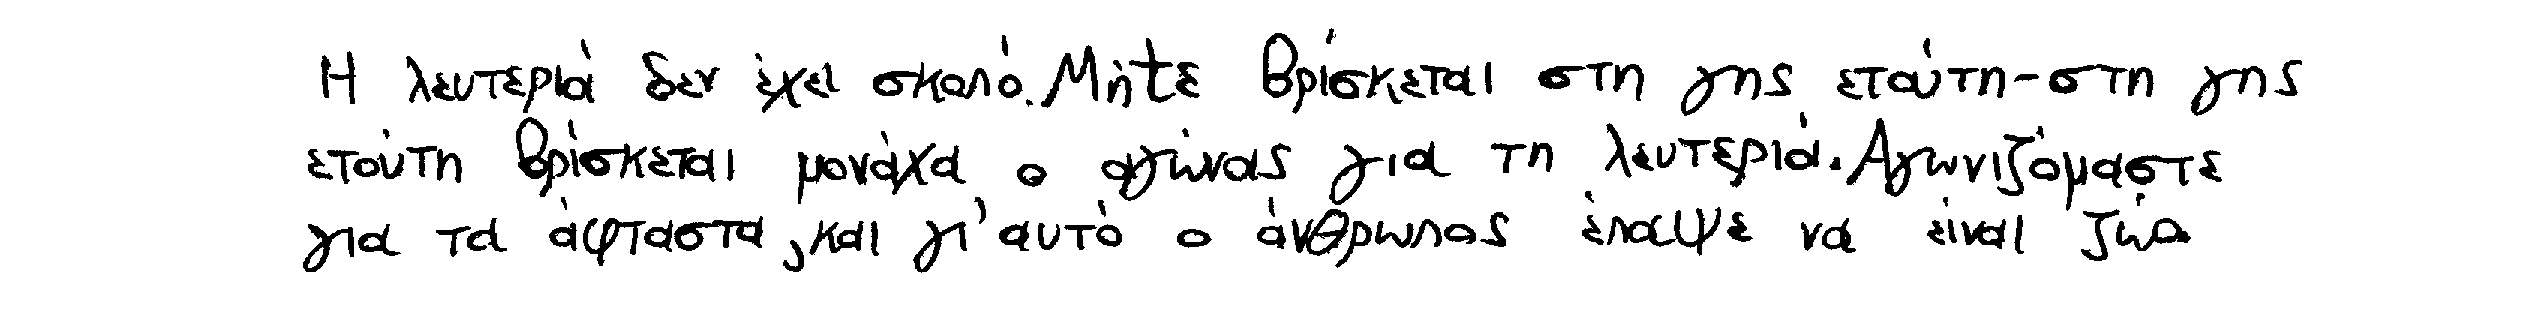 Η λευτεριά δεν έχει σκοπό. Μήτε βρίσκεται στη γης ετούτη-στη γης
ετούτη βρίσκεται μονάχα ο αγώνας για τη λευτεριά. Αγωνιζόμαστε
για τα άφταστα, και γι' αυτό ο άνθρωπος έπαψε να είναι ζώο